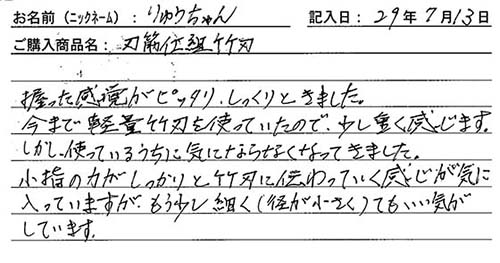 お名前（ニックネーム）：りゅうちゃん 記入日：29年7月13日
ご購入商品名：刃筋仕組竹刃
握った感覚がピッタリ、しっくりときました。
今まで軽量竹刃を使っていたので、少し重く感じます。
しかし、使っているうちに気にならなくなってきました。
小指の力がしっかりと竹刃に伝わっていく感じが気に
入っていますが、もう少し細く（径が小さく）てもいい気が
しています。